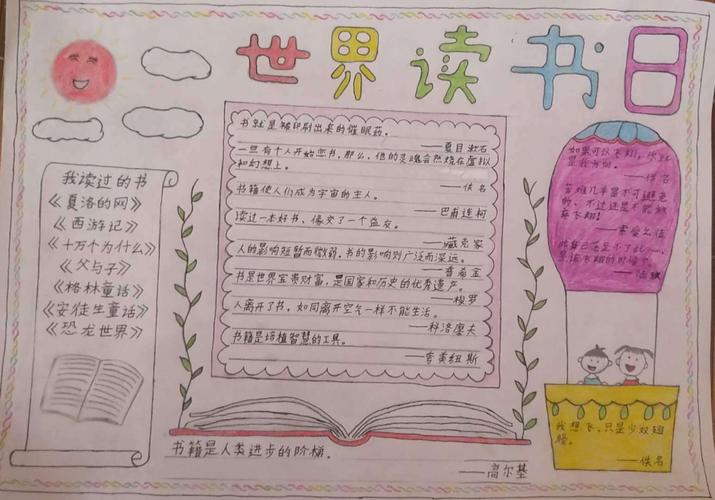 世界读书日
我读过的书
《夏洛的网》
《西游记》
《十万个为什么》
《父与子》
《格林童话》
《安徒生童话》
《恐龙世界》
书就是被印刷出来的催眠药。
——夏目漱石
一旦有个人开始恋书,那么,他的灵魂会燃烧在虚拟
和幻想上。
——佚名
书籍使人们成为宇宙的主人。
——巴甫连柯
读过一本好书、像交了一个益友。
——臧克家
人的影响短暂而微弱,书的影响则广泛而深远。
——普希金
书是世界宝贵财富,是国家和历史的优秀遗产。
——梭罗
人离开了书,如同离开空气一样不能生活。
——科洛廖夫
书籍是培植智慧的工具。
——夸美纽斯
书籍是人类进步的阶梯。
——高尔基
如果可以飞翔,
——佚名
苦难几乎是不可避免
的、不过还是不能放
弃飞翔!
我想飞、只是少双翅
膀。
——佚名